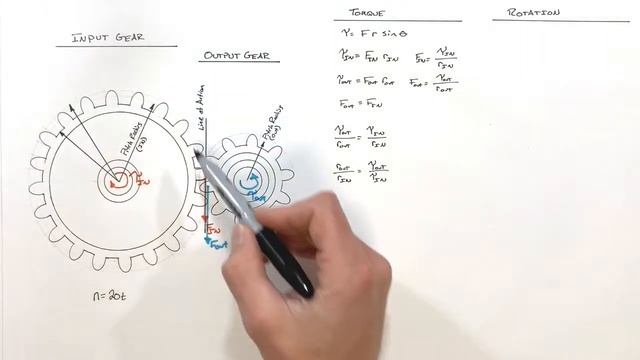 INPUT GEAR
OUTPUT GEAR
Line of Action
Pitch Radius
(IN)
Pitch Radius
(OUT)
τIN
τOUT
FIN
FOUT
n=20t
TORQUE
τ = F r sin θ
τIN = FIN rIN    FIN = τIN/rIN
τOUT = FOUT rOUT    FOUT = τOUT/rOUT
FOUT = FIN
τOUT/rOUT = τIN/rIN
rOUT/rIN = τOUT/τIN
ROTATION